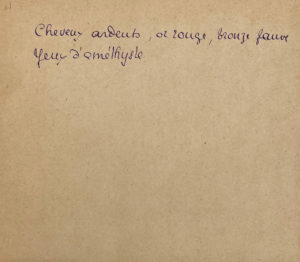 Cheveux ardents, or rouge, bronze fauve
Yeux d'améthyste